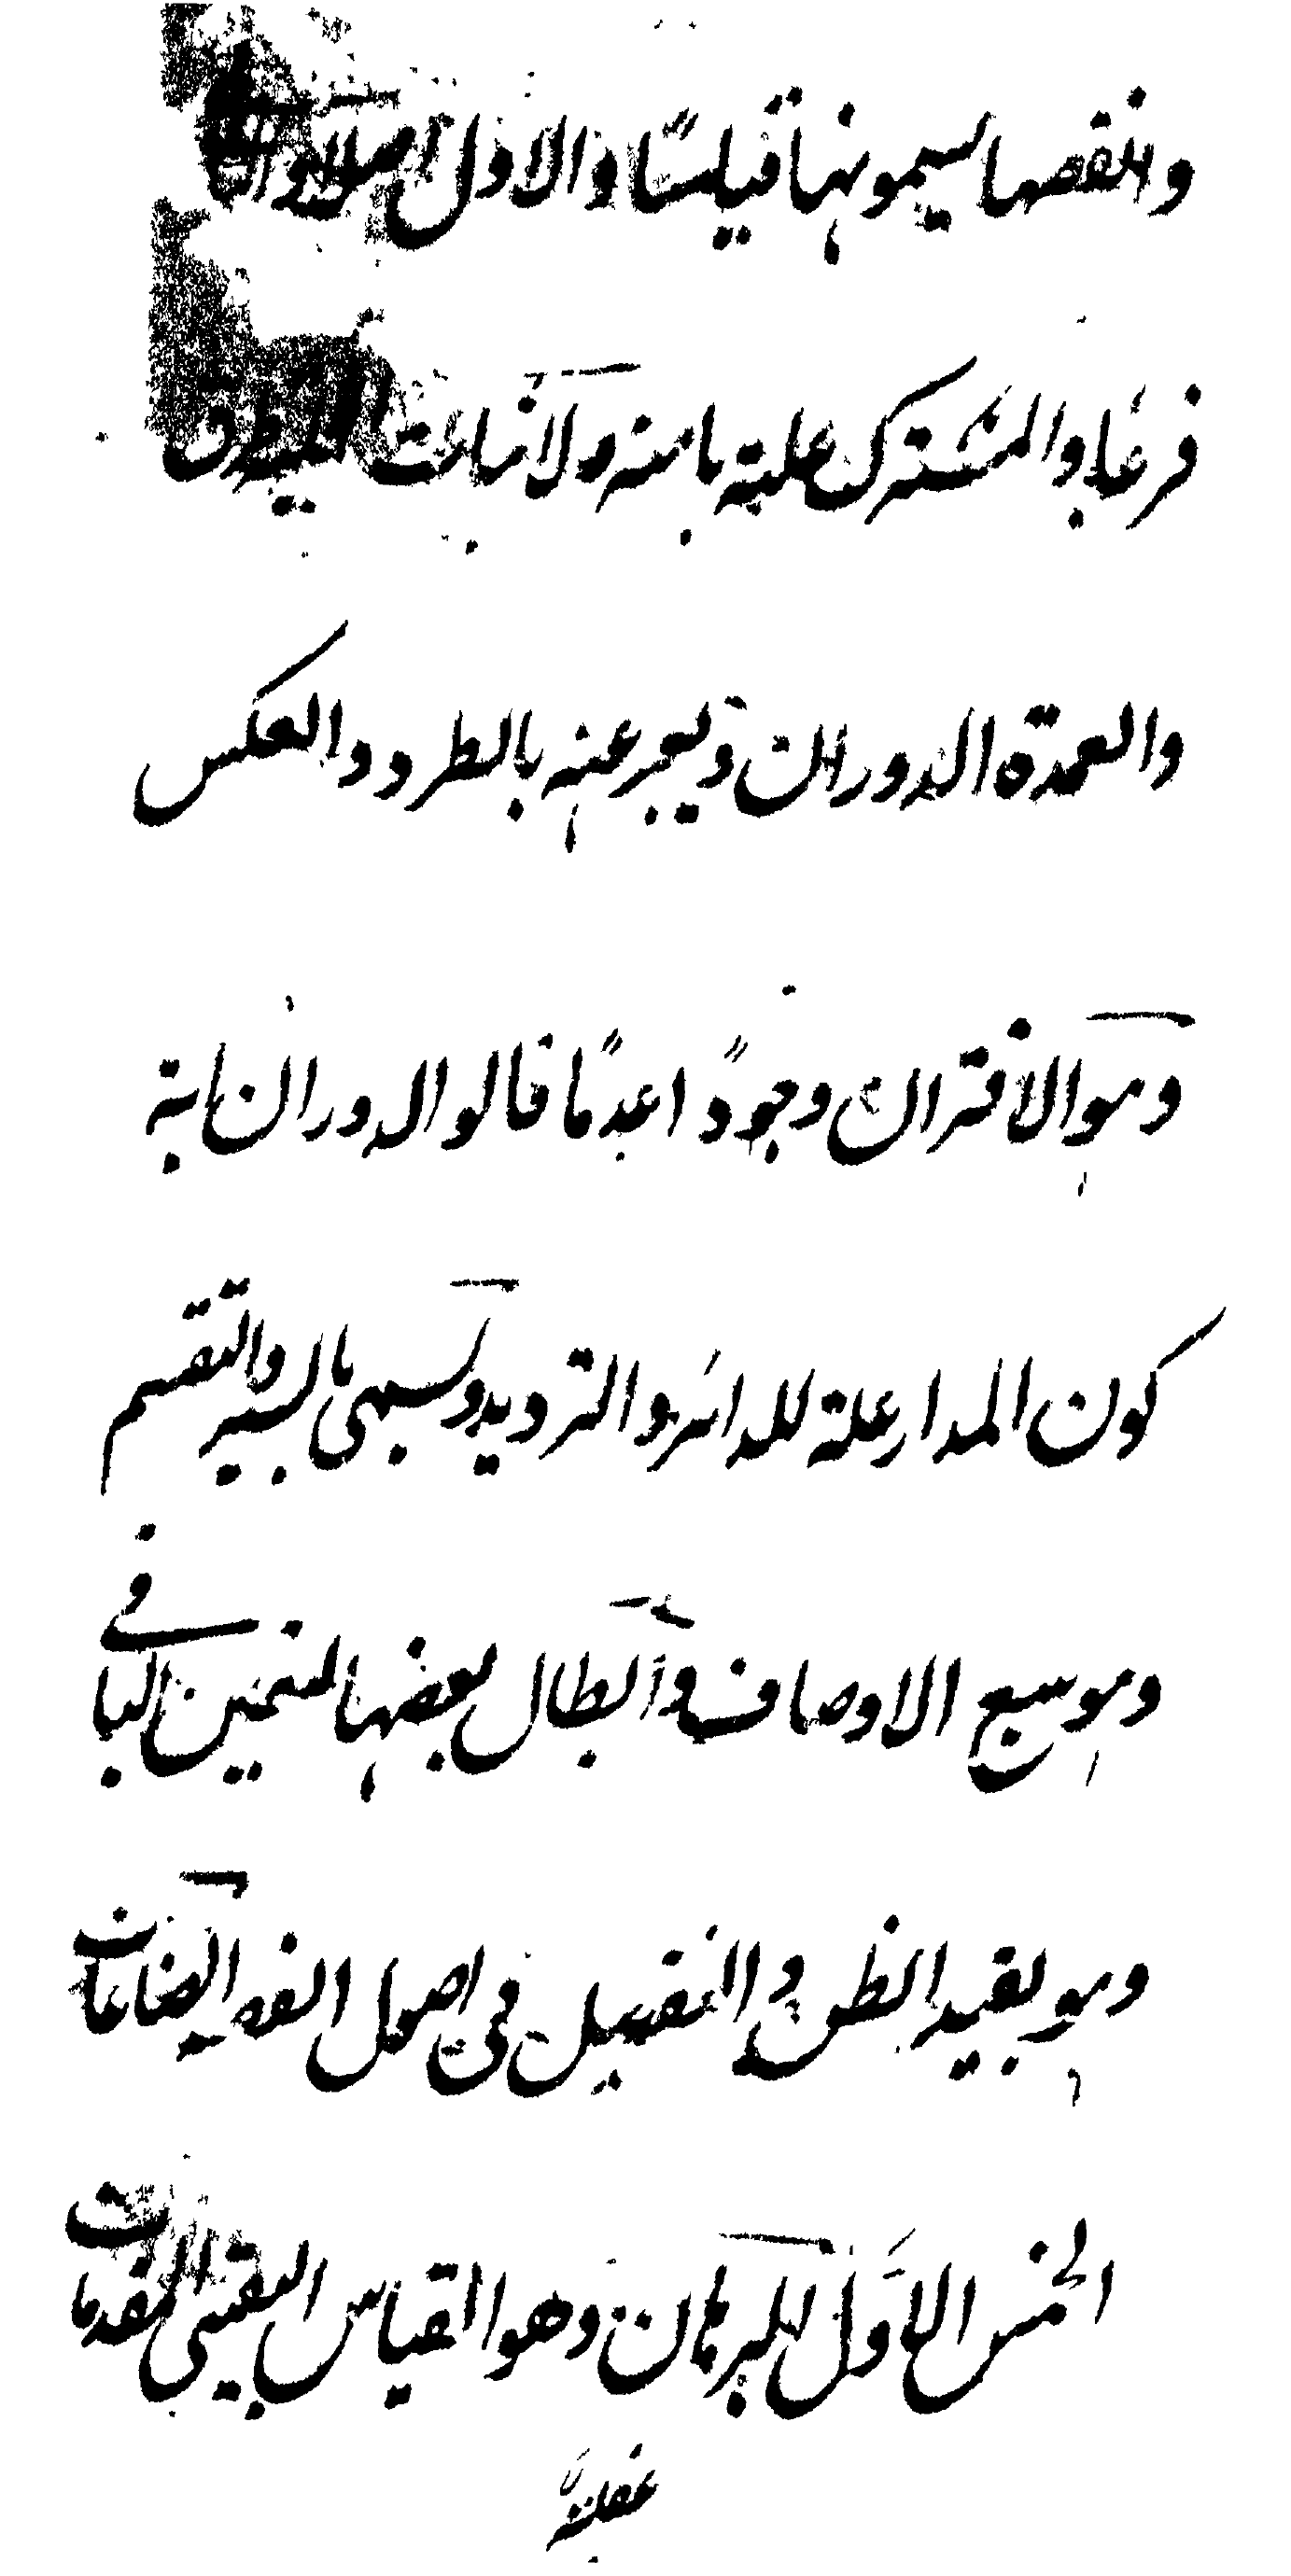 والفقهاء يسمونها قياسًا والاول اصلا والثا
فرعًا والمشترك علية جامعة ولاثبات العلية طرق
والعمدة الدوران ويعبر عنه بالطرد والعكس
وهو الاقتران وجودًا عدمًا قالوا الدوران اية
كون المدار علة للدائر والترديد ويسمى بالسبر والتقسيم
وهو تتبع الاوصاف وابطال بعضها لتعين الباقى
وهو يفيد الظن والتفصيل فى اصول الفقه الصناعات
الخمس الاول البرهان وهو القياس اليقينى المقدمات
عقلية